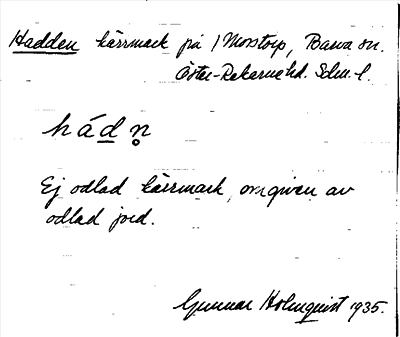 Hadden kärrmark på Morstorp, Barva sn.
Öster-Rekarne hd. Sdm. l.
hád̲n̥
Ej odlad kärrmark, omgiven av
odlad jord.
Gunnar Holmquist 1935.